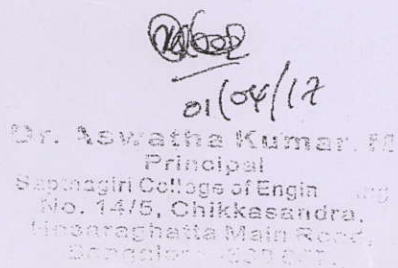 01/04/17
Dr. Aswatha Kumar. M
Principal
Sapthagiri College of Engin
No. 14/5, Chikkasandra,
Hesaraghatta Main Road,
Bangalore